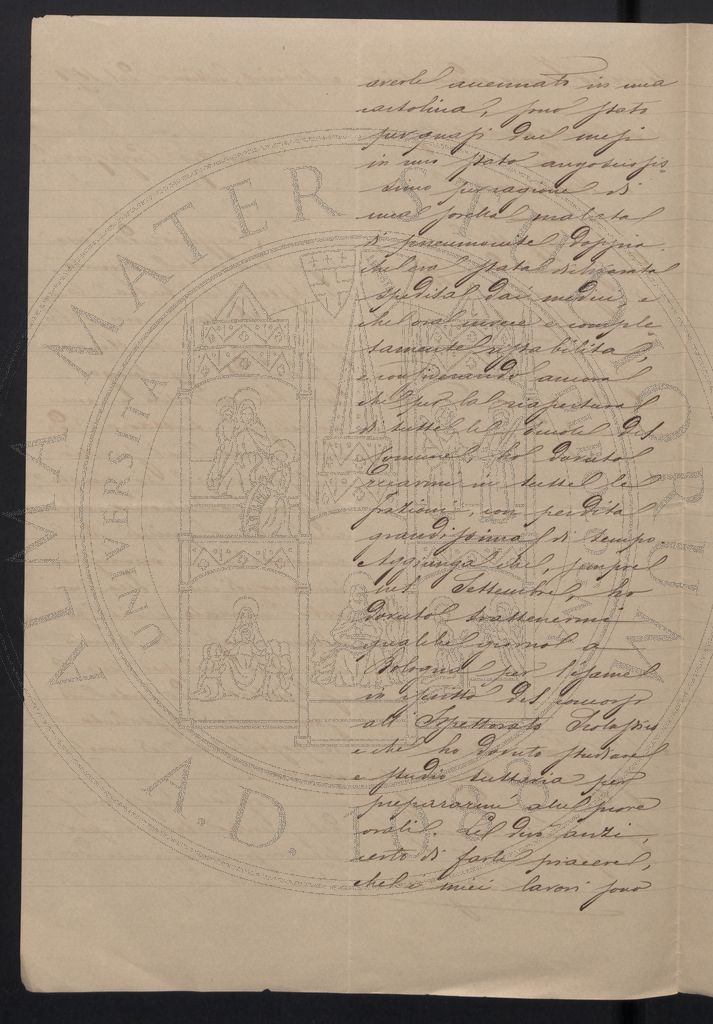 averle accennato in una
cartolina, sono stato
per quasi due mesi
in uno stato angosciosis-
simo per ragione di
mia sorella malata
di pneumonite doppia
che era stata dichiarata
spedita dai medici, e
che ora invece è comple
tamente ristabilita,
e considerando ancora
che per la riapertura
di tutte le scuole del
Comune ho dovuto
recarmi in tutte le
frazioni, con perdita
grandissima di tempo.
Aggiunga che, sempre
nel Settembre, ho
dovuto trattenermi
qualche giorno a
Bologna per l'esame
in iscritto del concorso
all' Ispettorato Scolastico
e che ho dovuto studiare
e studio tuttavia per
prepararmi alle prove
orali. Le dirò anzi,
certo di farle piacere,
che i miei lavori sono
ALMA MATER STUDIORUM
UNIVERSITÀ
A.D. 1088